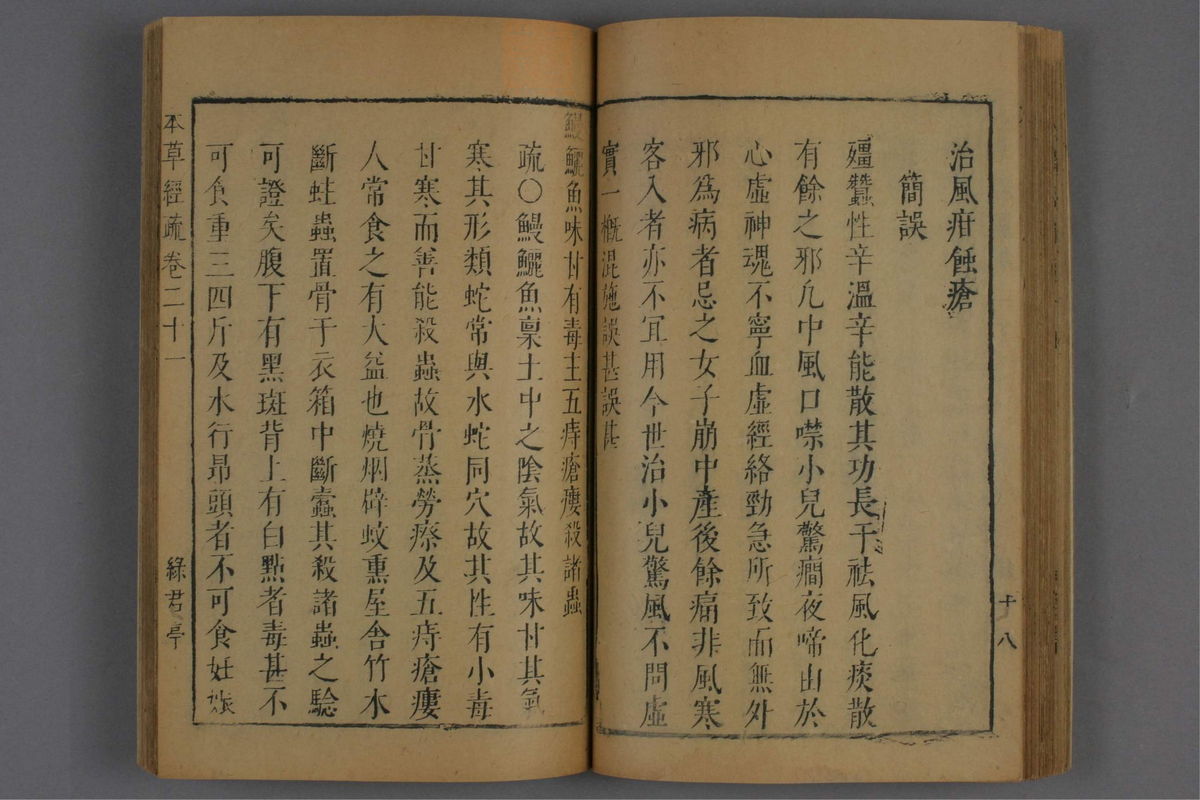 治風疳蝕瘡
簡誤
殭蠶性辛溫辛能散其功長于祛風化痰散
有餘之邪凡中風口噤小兒驚癎夜啼由於
心虛神魂不寧血虛經絡勁急所致而無外
邪為病者忌之女子崩中產後餘痛非風寒
客入者亦不宜用今世治小兒驚風不問虛
實一槩混施誤甚誤甚
十八
鰻鱺魚味甘有毒主五痔瘡瘻殺諸蟲
疏○鰻鱺魚稟土中之陰氣故其味甘其氣
寒其形類蛇常與水蛇同穴故其性有小毒
甘寒而善能殺蟲故骨蒸勞瘵及五痔瘡瘻
人常食之有大益也燒烟辟蚊熏屋舍竹木
斷蛀蟲置骨于衣箱中斷蠹其殺諸蟲之驗
可證矣腹下有黑斑背上有白點者毒甚不
可食重三四斤及水行昻頭者不可食妊娠
本草經疏卷二十一
綠君亭